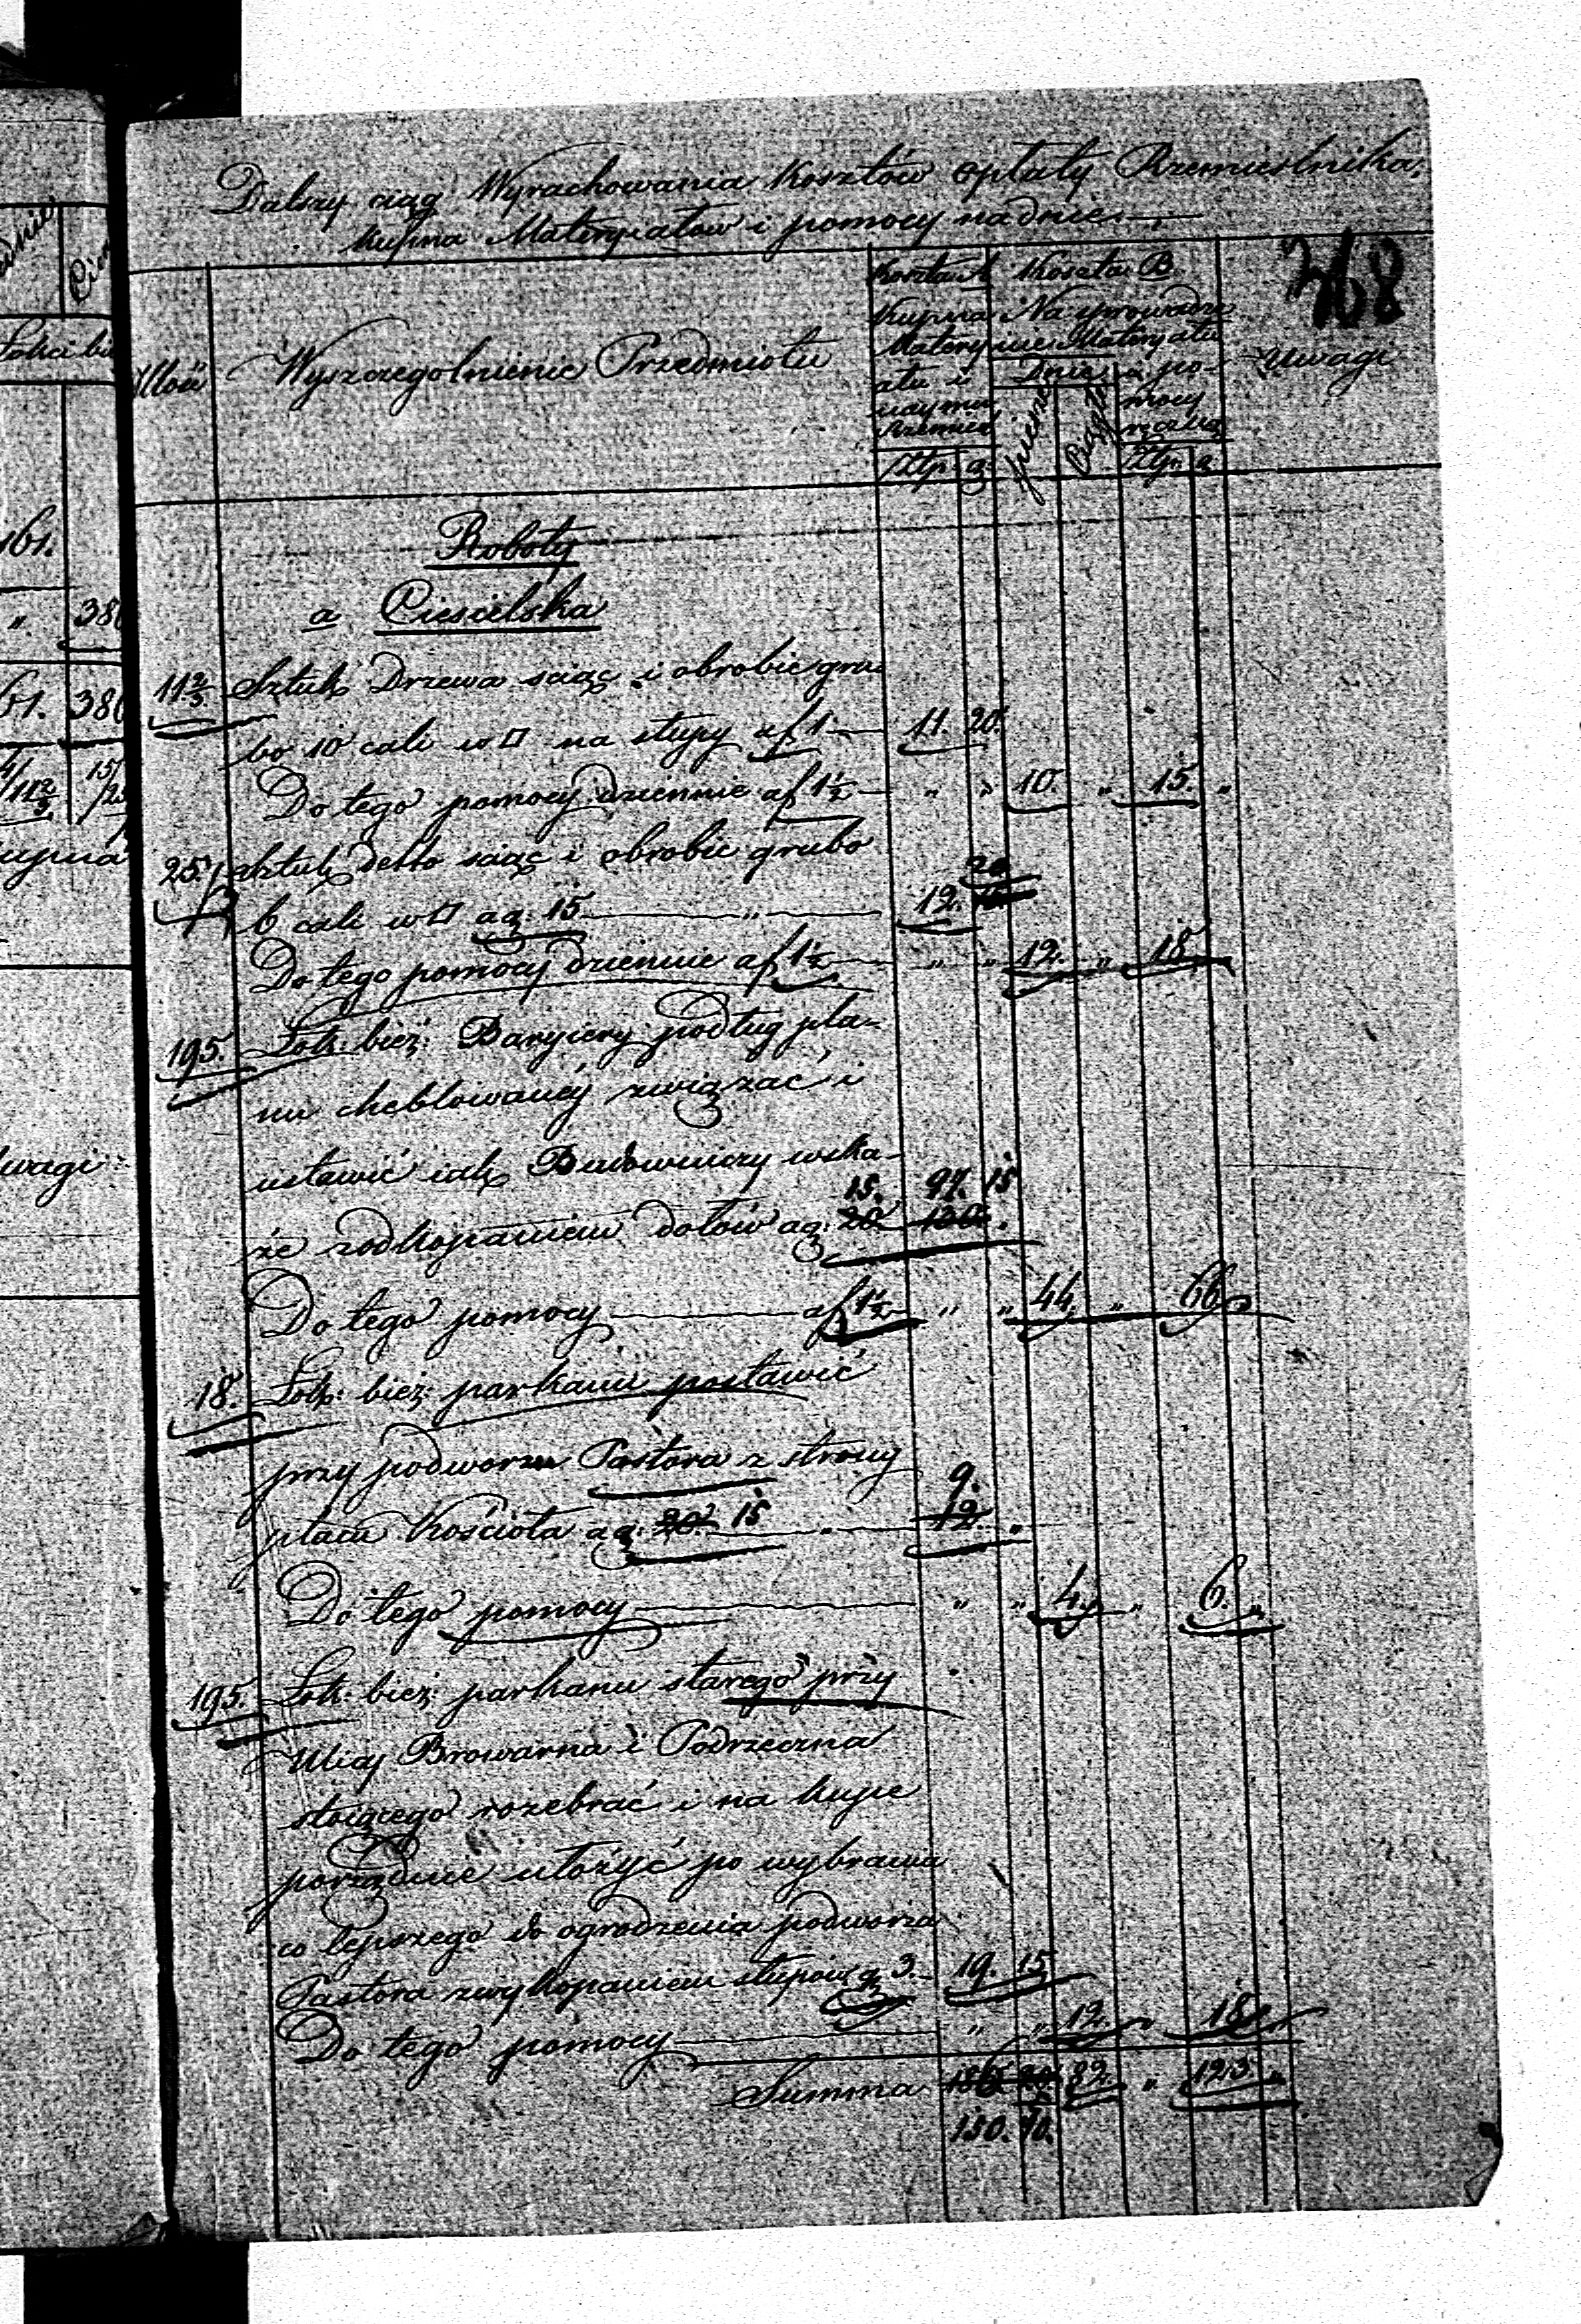 Dalszy ciąg Wyrachowania Kosztów opłaty Rzemieslnika,
Kupna Materyałów i pomocy na dnie
368
Ilość
Wyszczegolnienie Przedmiotu
Koszta A
Kupna
Matery
ału i
najmu
Rzemieś
Złp. g.
Koszta B.
Na sprowadze
nie Materyału
Dnie
piesze
Ciągłe
a po-
mocy
ręczną
Złp. g
Uwagi
Roboty
a Ciesielska
11 2/3. Sztuk Drzewa sciąć i obrobić gru
bo 10 cali w □ na słupy af 1 11. 20.
Do tego pomocy dziennie af 1½ " " 10. " 15. "
25. sztuk detto sciąć i obrobić grubo
6 cali w □ a g. 15 " 12. 15 20
Do tego pomocy dziennie af 1½ " " 12. " 18
195. Łok: bież: Baryiery podług pla-
nu cheblowanéy związać i
ustawić iak Budowniczy wska-
że zodkopaniem dołów a g. 20 15. 130. 97. 15
Do tego pomocy af 1½ " " 44. " 66
18. Łok: bież: parkanu postawić
przy podworzu Pastora z strony
placu Kościoła a g. 20 15 12. 9. "
Do tego pomocy " " 4. " 6. "
195. Łok: bież: parkanu starego przy
Ulicy Browarna i Podrzeczna
stoiącego rozebrać i na kupie
porządnie ułożyć po wybraniu
co lepszego do ogrodzenia podworza
Pastora zwykopaniem słupów g 3. 19. 15
Do tego pomocy " " 12 " 18
Summa 82. " 123. "
150. 10.
161.
" 380
61. 380